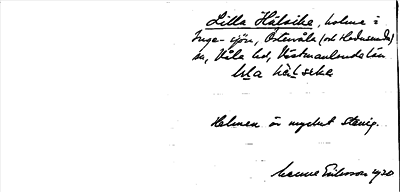 Lilla Hålsike, holme i
Inge-sjön, Östervåla (och Harbo
sn, Våla hd, Västmanlands län
lɩla hålsɩke
Holmen är mycket stenig.
Manne Eriksson 1930